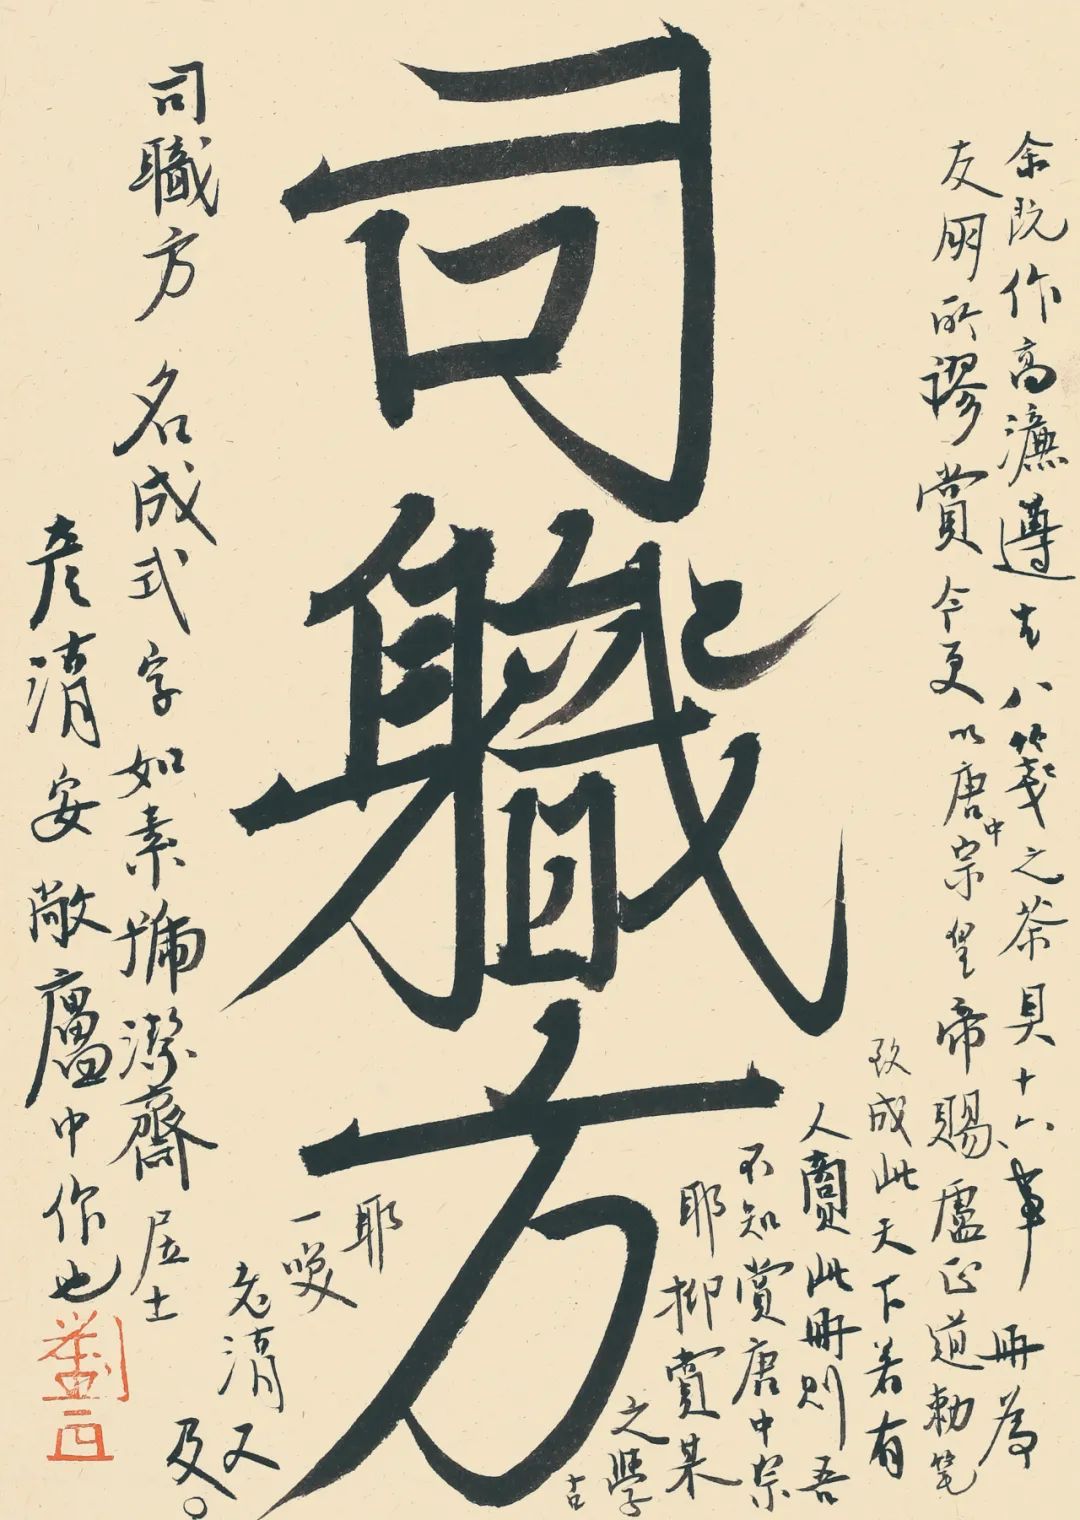 余既作高濂遵生八箋之茶具十六事冊為
友朋所謬賞今更以唐中宗皇帝賜盧正道勅笔
成此天下若有
人賞此冊則吾
不知賞唐中宗
耶抑賞某
之學
古
司職方
耶
一咲
老清又
及。
司職方名成式字如素號潔齋居士
彥清安敞廬中作也